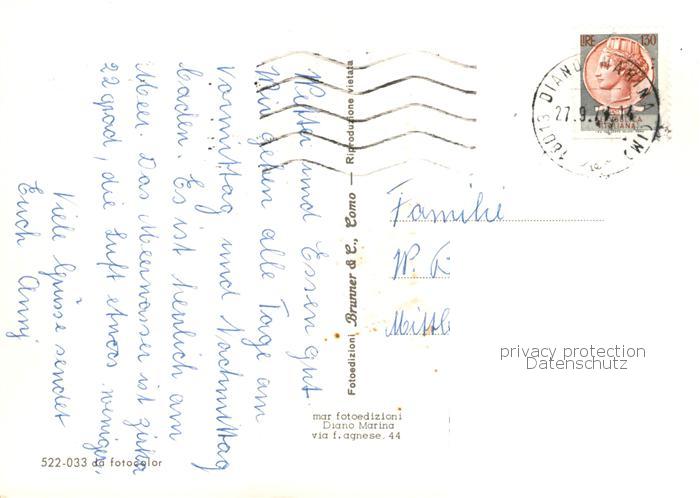 Wetter und Essen gut.
Wir gehen alle Tage am
Vormittag und Nachmittag
baden. Es ist herrlich am
Meer. Das Meerwasser ist zirka
22 grad, die Luft etwas weniger.
Viele Grüsse sendet
Euch Anny
Fotoedizioni Brunner & C., Como — Riproduzione vietata
LIRE 130
18013 DIANO MARINA (IM)
27.9.
ITALIANA
Familie
W.
Mittl
privacy protection
Datenschutz
mar fotoedizioni
Diano Marina
via f. agnese. 44
522-033 da fotocolor